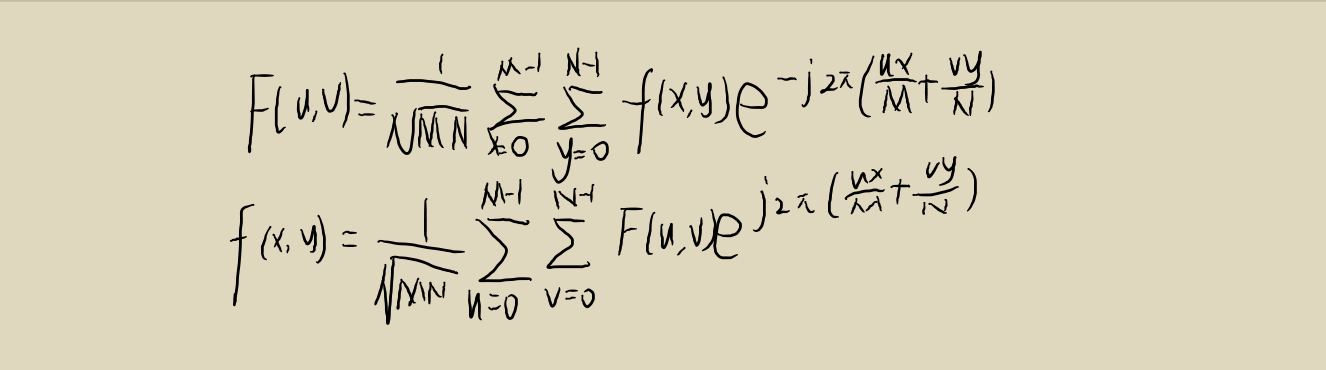 F(u,v)=\frac{1}{\sqrt{MN}} \sum_{x=0}^{M-1} \sum_{y=0}^{N-1} f(x,y)e^{-j2\pi(\frac{ux}{M}+\frac{vy}{N})}
f(x,y)=\frac{1}{\sqrt{MN}} \sum_{u=0}^{M-1} \sum_{v=0}^{N-1} F(u,v)e^{j2\pi(\frac{ux}{M}+\frac{vy}{N})}